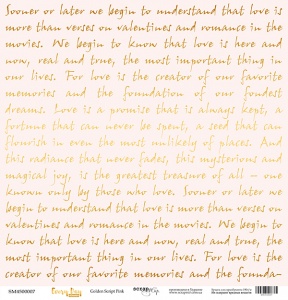 Sooner or later we begin to understand that love is
more than verses on valentines and romance in the
movies. We begin to know that love is here and
now, real and true, the most important thing in
our lives. For love is the creator of our favorite
memories and the foundation of our fondest
dreams. Love is a promise that is always kept, a
fortune that can never be spent, a seed that can
flourish in even the most unlikely of places. And
this radiance that never fades, this mysterious and
magical joy, is the greatest treasure of all – one
known only by those who love. Sooner or later we
begin to understand that love is more than verses on
valentines and romance in the movies. We begin to
know that love is here and now, real and true, the
most important thing in our lives. For love is the
creator of our favorite memories and the founda-
SM4500007 Golden Script Pink